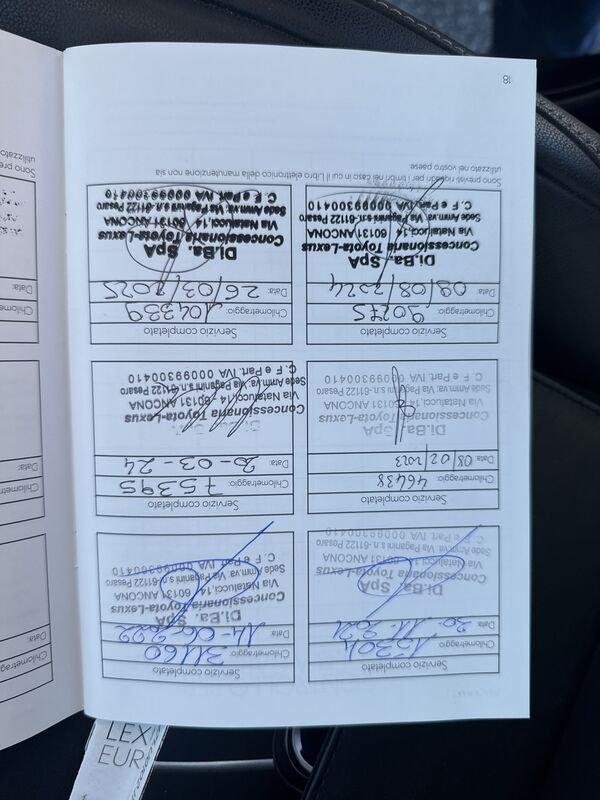 Servizio completato
Chilometraggio: 15304
Data: 30-11-2021
Di.Ba. SpA
Concessionaria Toyota-Lexus
Via Natalucci,14 60131 ANCONA
Sede Amm.va Via Paganini s.n.-61122 Pesaro
C. F e Part. IVA 00099300410
Servizio completato
Chilometraggio: 31160
Data: 14-06-2022
Di.Ba. SpA
Concessionaria Toyota-Lexus
Via Natalucci,14, 60131 ANCONA
Sede Amm.va Via Paganini s.n.-61122 Pesaro
C. F e Part. IVA 00099300410
Servizio completato
Chilometraggio: 46438
Data: 08/02/2023
Di.Ba. SpA
Concessionaria Toyota-Lexus
Via Natalucci,14, 60131 ANCONA
Sede Amm.va Via Paganini s.n.-61122 Pesaro
C. F e Part. IVA 00099300410
Servizio completato
Chilometraggio: 75395
Data: 20-03-24
Concessionaria Toyota-Lexus
Via Natalucci,14, 60131 ANCONA
Sede Amm.va Via Paganini s.n.-61122 Pesaro
C. F e Part. IVA 00099300410
Servizio completato
Chilometraggio: 90275
Data: 09/08/2024
Di.Ba. SpA
Concessionaria Toyota-Lexus
Via Natalucci,14, 60131 ANCONA
Sede Amm.va Via Paganini s.n.-61122 Pesaro
C. F e Part. IVA 00099300410
Servizio completato
Chilometraggio: 104339
Data: 26/03/2025
Di.Ba. SpA
Concessionaria Toyota-Lexus
Via Natalucci,14, 60131 ANCONA
Sede Amm.va Via Paganini s.n.-61122 Pesaro
C. F e Part. IVA 00099300410
Sono previsti riquadri per i timbri nel caso in cui il Libretto elettronico della manutenzione non sia
utilizzato nel vostro paese.
18
Data:
Data:
Data:
Sono pre
utilizzato
LEX
EUR